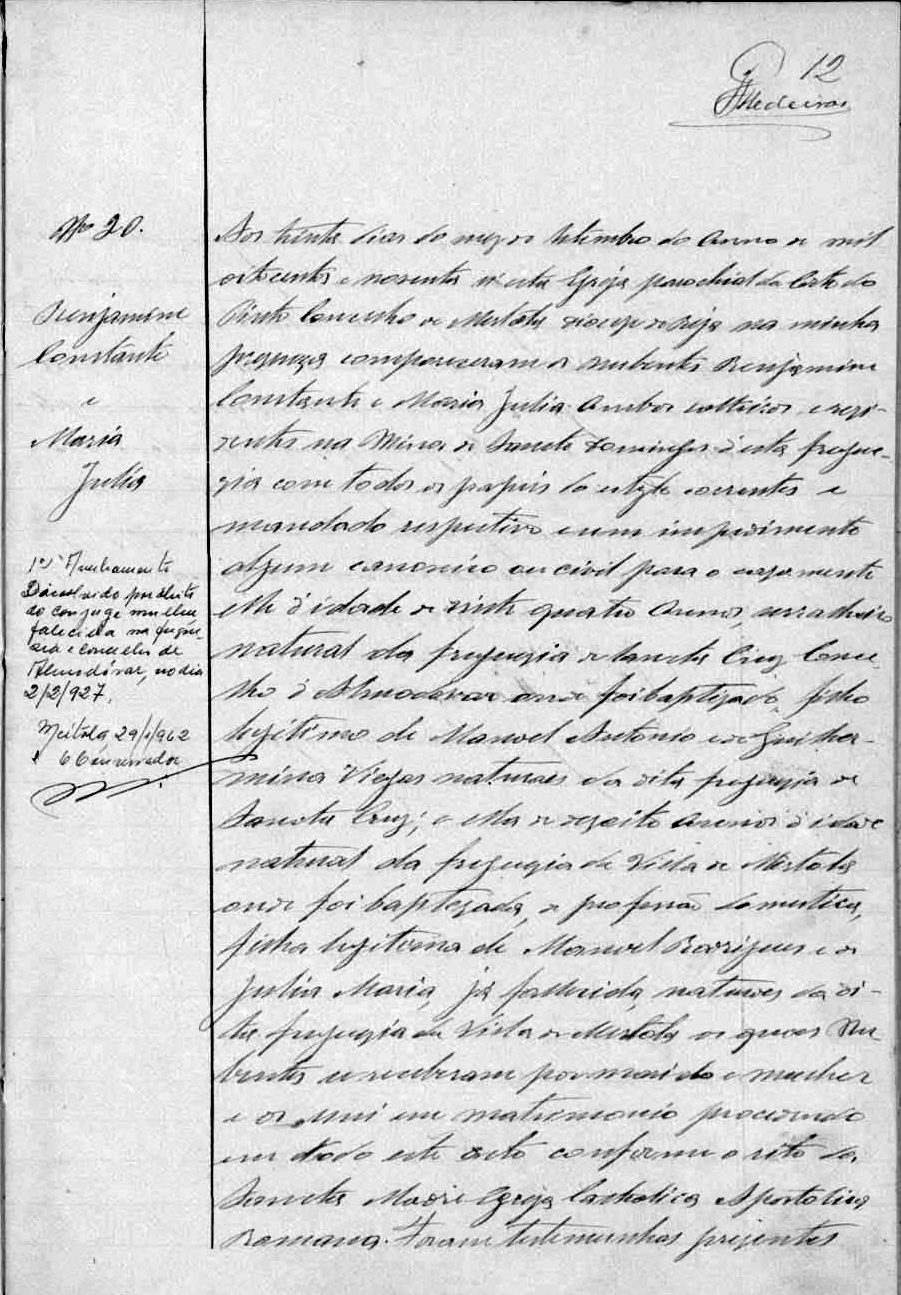 12
Medeiros
Nº 20.
Benjamine
Constante
e
Maria
Julia
1º Averbamento
Dissolvido por obito
do conjuge mulher
falecida na fregue-
sia e concelho de
Almodóvar, no dia
2/2/927.
Mértola 29/1/962
O Conservador
Aos trinta dias do mez de Setembro do anno de mil
oitocentos e noventa n'esta Egreja parochial da Corte do
Pinto Concelho de Mertola diocese de Beja na minha
presença compareceram os nubentes Benjamine
Constante e Maria Julia ambos solteiros e resi-
dentes na Mina de Sancto Domingos d'esta fregue-
zia com todos os papeis do estylo correntes e
mandado respectivo e sem impedimento
algum canonico ou civil para o casamento
elle d'idade de vinte quatro annos, serralheiro
natural da freguezia de Sancta Cruz Conce-
lho d'Almodovar onde foi baptizado, filho
legitimo de Manoel Antonio e de Guilher-
mina Viegas naturaes da dita freguezia de
Sancta Cruz; e ella de dezoito annos d'idade
natural da freguezia da Villa de Mertola
onde foi baptizada, de profissão domestica,
filha legitima de Manoel Rodrigues e de
Julia Maria, já fallecida, naturaes da di-
ta freguezia da Villa de Mertola os quaes nu-
bentes se receberam por marido e mulher
e os uni em matrimonio procedendo
em todo este acto conforme o rito da
Sancta Madre Egreja Catholica Apostolica
Romana. Foram testemunhas prezentes